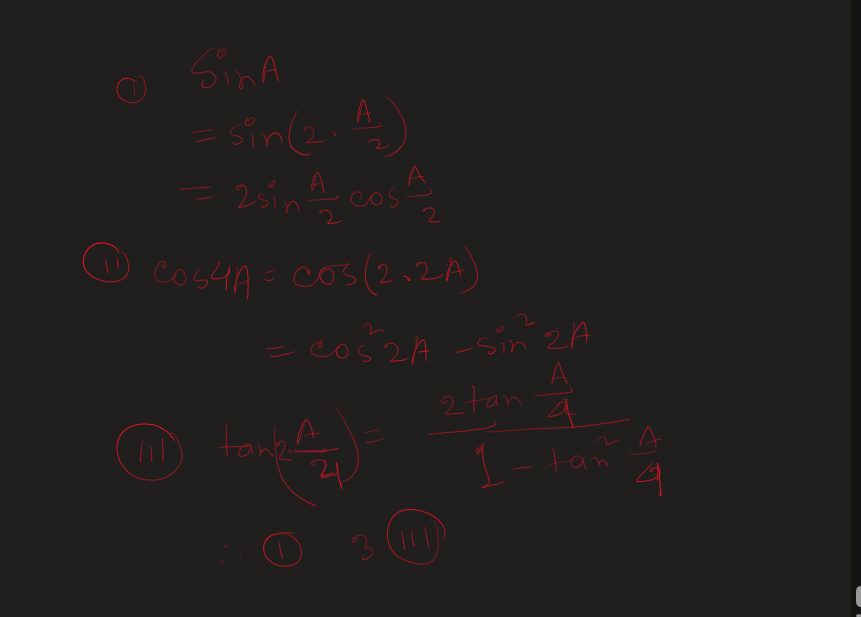 ① SinA
= sin(2·A/2)
= 2sin A/2 cos A/2
ⓘⓘ cos4A = cos(2·2A)
= cos²2A - sin²2A
ⓘⓘⓘ tan(2·A/4) = (2tan A/4)/(1 - tan² A/4)
∴ ① ও ⓘⓘⓘ